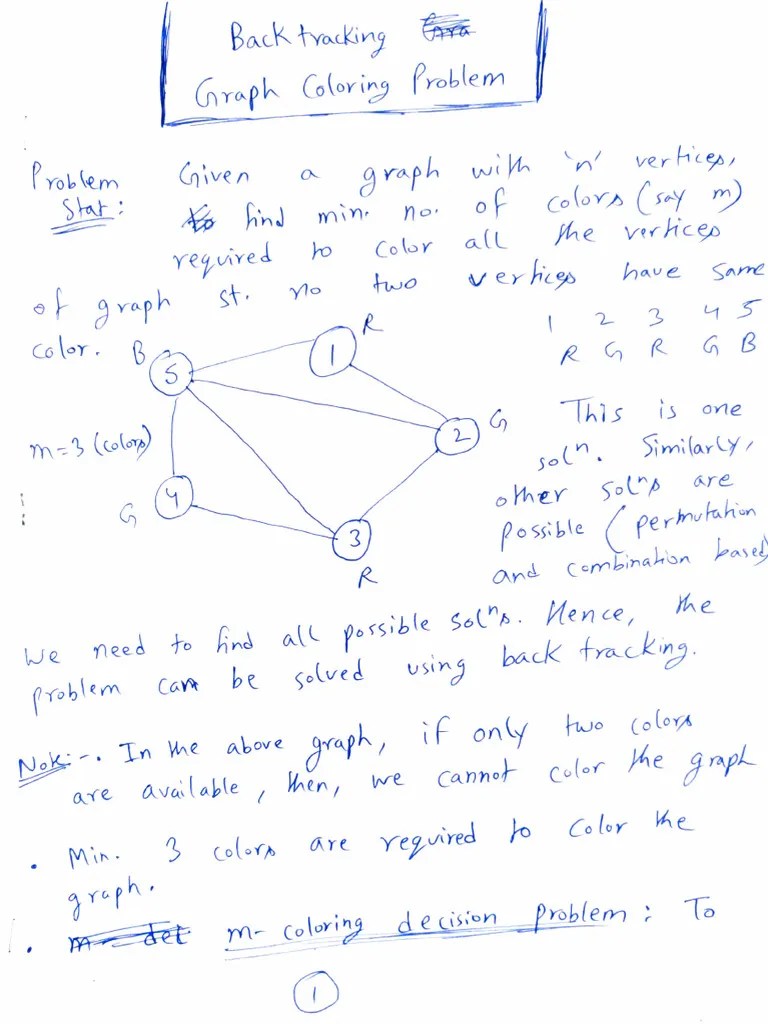 Back tracking
Graph Coloring Problem
Problem Stat: Given a graph with 'n' vertices,
find min. no. of colors (say m)
required to color all the vertices
of graph st. no two vertices have same
color.
1 2 3 4 5
R G R G B
B 5
R 1
G 2
m=3 (colors)
G 4
3 R
This is one
solⁿ. Similarly,
other solⁿs are
possible (permutation
and combination based)
We need to find all possible solⁿs. Hence, the
problem can be solved using back tracking.
Note:-. In the above graph, if only two colors
are available, then, we cannot color the graph
. Min. 3 colors are required to color the
graph.
. m- coloring decision problem: To
1